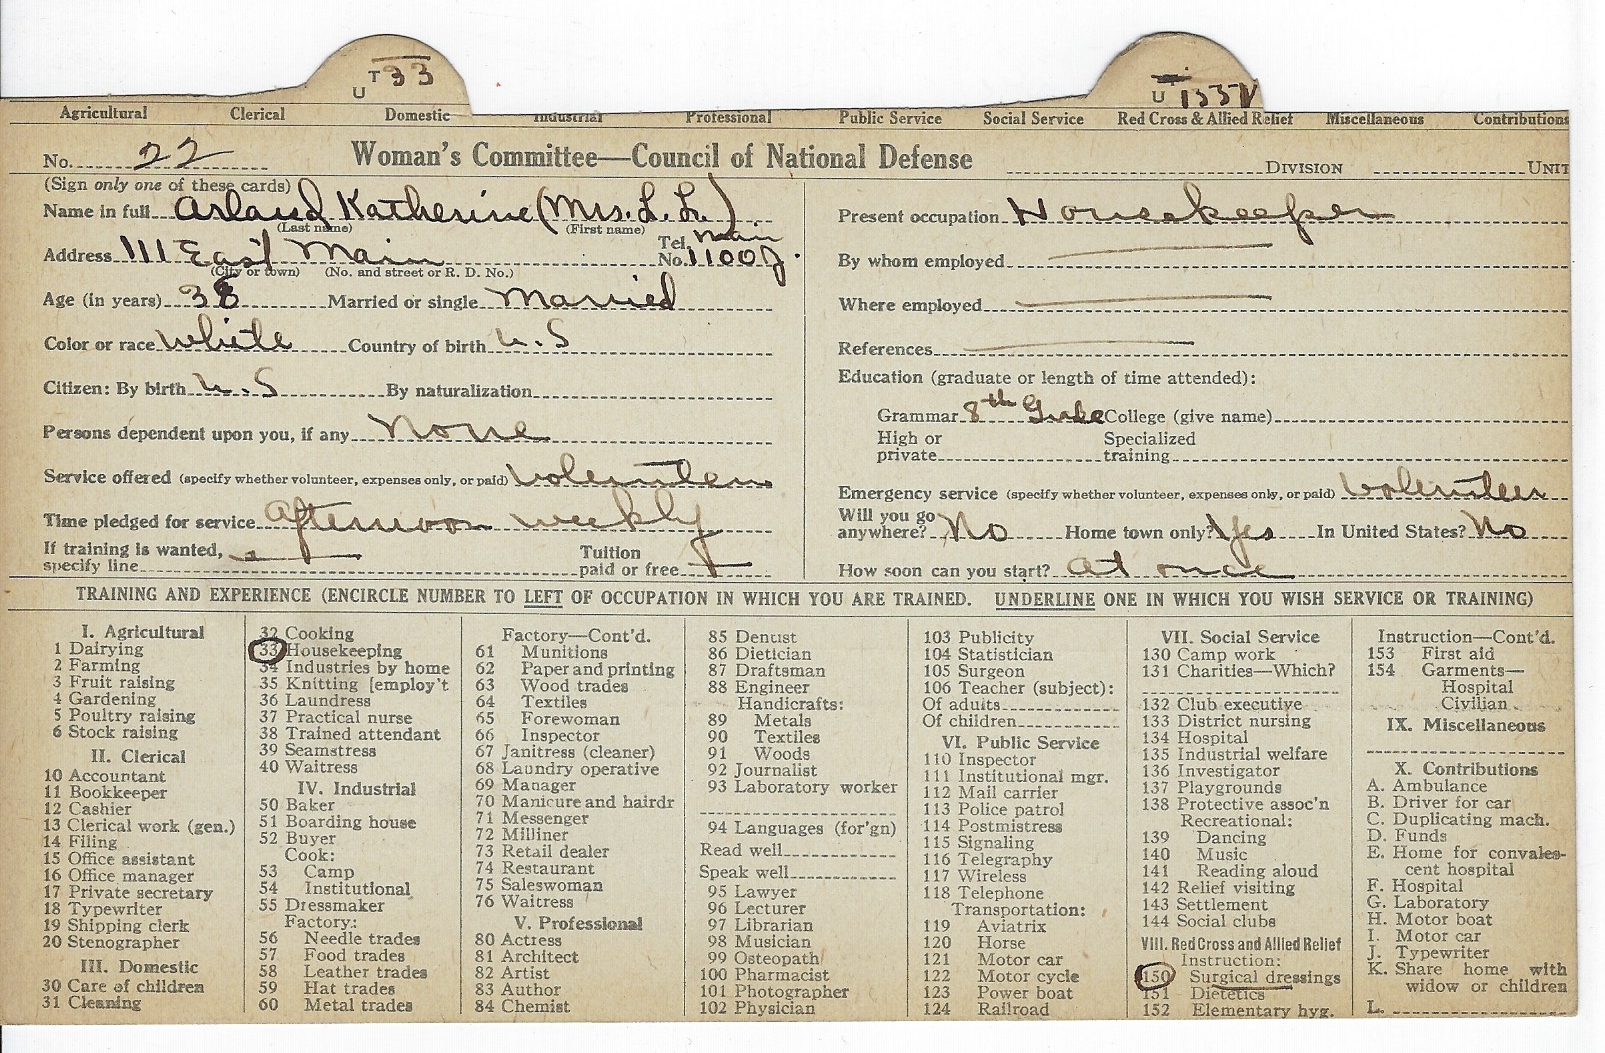 T 33
U
U 153V
Agricultural Clerical Domestic Industrial Professional Public Service Social Service Red Cross & Allied Relief Miscellaneous Contributions
No. 22 Woman's Committee—Council of National Defense DIVISION UNIT
(Sign only one of these cards)
Name in full Arland Katherine (Mrs. L. L.)
(Last name) (First name)
Address 111 East Main Tel. No. Main 1100J.
(City or town) (No. and street or R. D. No.)
Age (in years) 38 Married or single Married
Color or race White Country of birth U.S
Citizen: By birth U.S By naturalization
Persons dependent upon you, if any None
Service offered (specify whether volunteer, expenses only, or paid) Volunteer
Time pledged for service Afternoon weekly
If training is wanted, specify line Tuition paid or free
Present occupation Housekeeper
By whom employed
Where employed
References
Education (graduate or length of time attended):
Grammar 8th Grade College (give name)
High or private Specialized training
Emergency service (specify whether volunteer, expenses only, or paid) Volunteer
Will you go anywhere? No Home town only? Yes In United States? No
How soon can you start? At once
TRAINING AND EXPERIENCE (ENCIRCLE NUMBER TO LEFT OF OCCUPATION IN WHICH YOU ARE TRAINED. UNDERLINE ONE IN WHICH YOU WISH SERVICE OR TRAINING)
I. Agricultural
1 Dairying
2 Farming
3 Fruit raising
4 Gardening
5 Poultry raising
6 Stock raising
II. Clerical
10 Accountant
11 Bookkeeper
12 Cashier
13 Clerical work (gen.)
14 Filing
15 Office assistant
16 Office manager
17 Private secretary
18 Typewriter
19 Shipping clerk
20 Stenographer
III. Domestic
30 Care of children
31 Cleaning
32 Cooking
33 Housekeeping
34 Industries by home
35 Knitting [employ't
36 Laundress
37 Practical nurse
38 Trained attendant
39 Seamstress
40 Waitress
IV. Industrial
50 Baker
51 Boarding house
52 Buyer
Cook:
53 Camp
54 Institutional
55 Dressmaker
Factory:
56 Needle trades
57 Food trades
58 Leather trades
59 Hat trades
60 Metal trades
Factory—Cont'd.
61 Munitions
62 Paper and printing
63 Wood trades
64 Textiles
65 Forewoman
66 Inspector
67 Janitress (cleaner)
68 Laundry operative
69 Manager
70 Manicure and hairdr
71 Messenger
72 Milliner
73 Retail dealer
74 Restaurant
75 Saleswoman
76 Waitress
V. Professional
80 Actress
81 Architect
82 Artist
83 Author
84 Chemist
85 Dentist
86 Dietician
87 Draftsman
88 Engineer
Handicrafts:
89 Metals
90 Textiles
91 Woods
92 Journalist
93 Laboratory worker
94 Languages (for'gn)
Read well
Speak well
95 Lawyer
96 Lecturer
97 Librarian
98 Musician
99 Osteopath
100 Pharmacist
101 Photographer
102 Physician
103 Publicity
104 Statistician
105 Surgeon
106 Teacher (subject):
Of adults
Of children
VI. Public Service
110 Inspector
111 Institutional mgr.
112 Mail carrier
113 Police patrol
114 Postmistress
115 Signaling
116 Telegraphy
117 Wireless
118 Telephone
Transportation:
119 Aviatrix
120 Horse
121 Motor car
122 Motor cycle
123 Power boat
124 Railroad
VII. Social Service
130 Camp work
131 Charities—Which?
132 Club executive
133 District nursing
134 Hospital
135 Industrial welfare
136 Investigator
137 Playgrounds
138 Protective assoc'n
Recreational:
139 Dancing
140 Music
141 Reading aloud
142 Relief visiting
143 Settlement
144 Social clubs
VIII. Red Cross and Allied Relief
Instruction:
150 Surgical dressings
151 Dietetics
152 Elementary hyg.
Instruction—Cont'd.
153 First aid
154 Garments—
Hospital
Civilian
IX. Miscellaneous
X. Contributions
A. Ambulance
B. Driver for car
C. Duplicating mach.
D. Funds
E. Home for convales-
cent hospital
F. Hospital
G. Laboratory
H. Motor boat
I. Motor car
J. Typewriter
K. Share home with
widow or children
L.